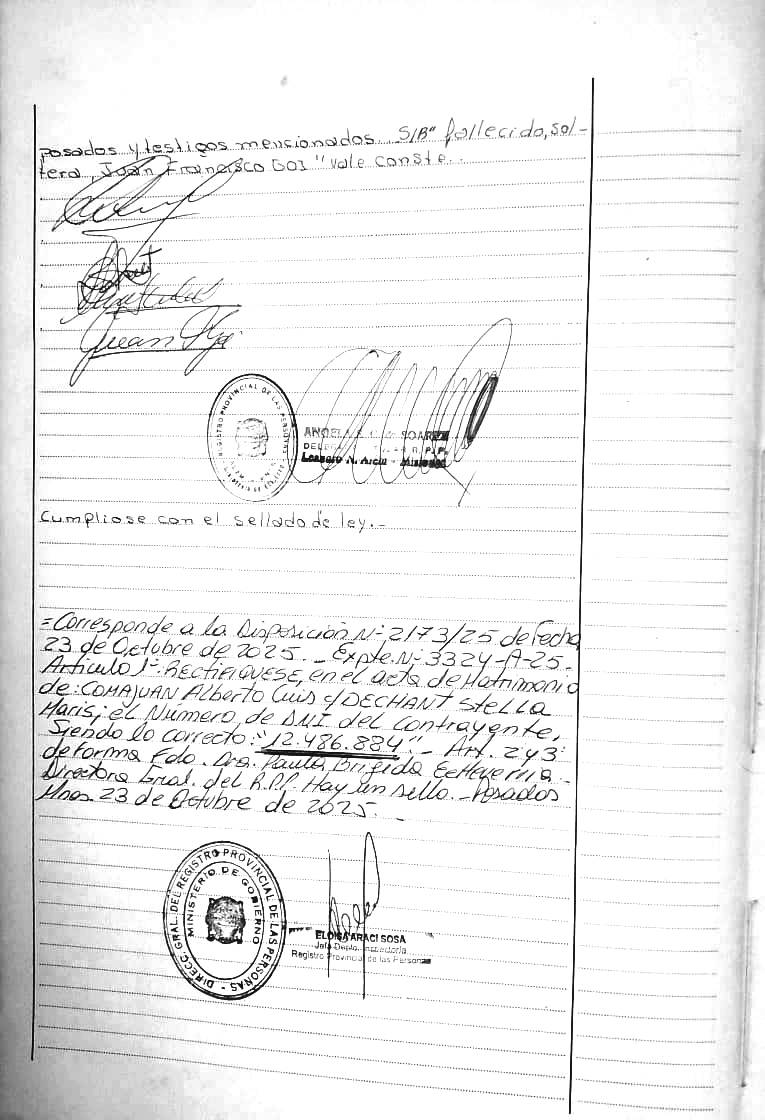 posados y testigos mencionados. S/B" fallecido, sol-
tera, Juan Francisco" vale conste..
Juan
REGISTRO PROVINCIAL DE LAS PERSONAS
ANGELA SOAREZ
DELEG R. P. P.
Leandro N. Alem - Misiones
Cumpliose con el sellado de ley.-
=Corresponde a la Disposición Nº 2173/25 de Fecha
23 de Octubre de 2025._ Expte. Nº 3324-A-25-
Artículo 1º: RECTIFIQUESE, en el acta de Matrimonio
de: COMAJUAN Alberto Luis c/DECHANT Stella
Maris; el Número de DNI del Contrayente,
Siendo lo correcto: "12.486.884"._ Art. 2 y 3:
de forma Fdo. Dra. Paula Brigida Echeverria -
Directora Gral. del R.P.P. Hay un sello._ Posadas
Mnes. 23 de Octubre de 2025._
DIRECC. GRAL. DEL REGISTRO PROVINCIAL DE LAS PERSONAS
MINISTERIO DE GOBIERNO
ELOISA ARACI SOSA
Jefa Depto.
Registro Provincial de las Personas